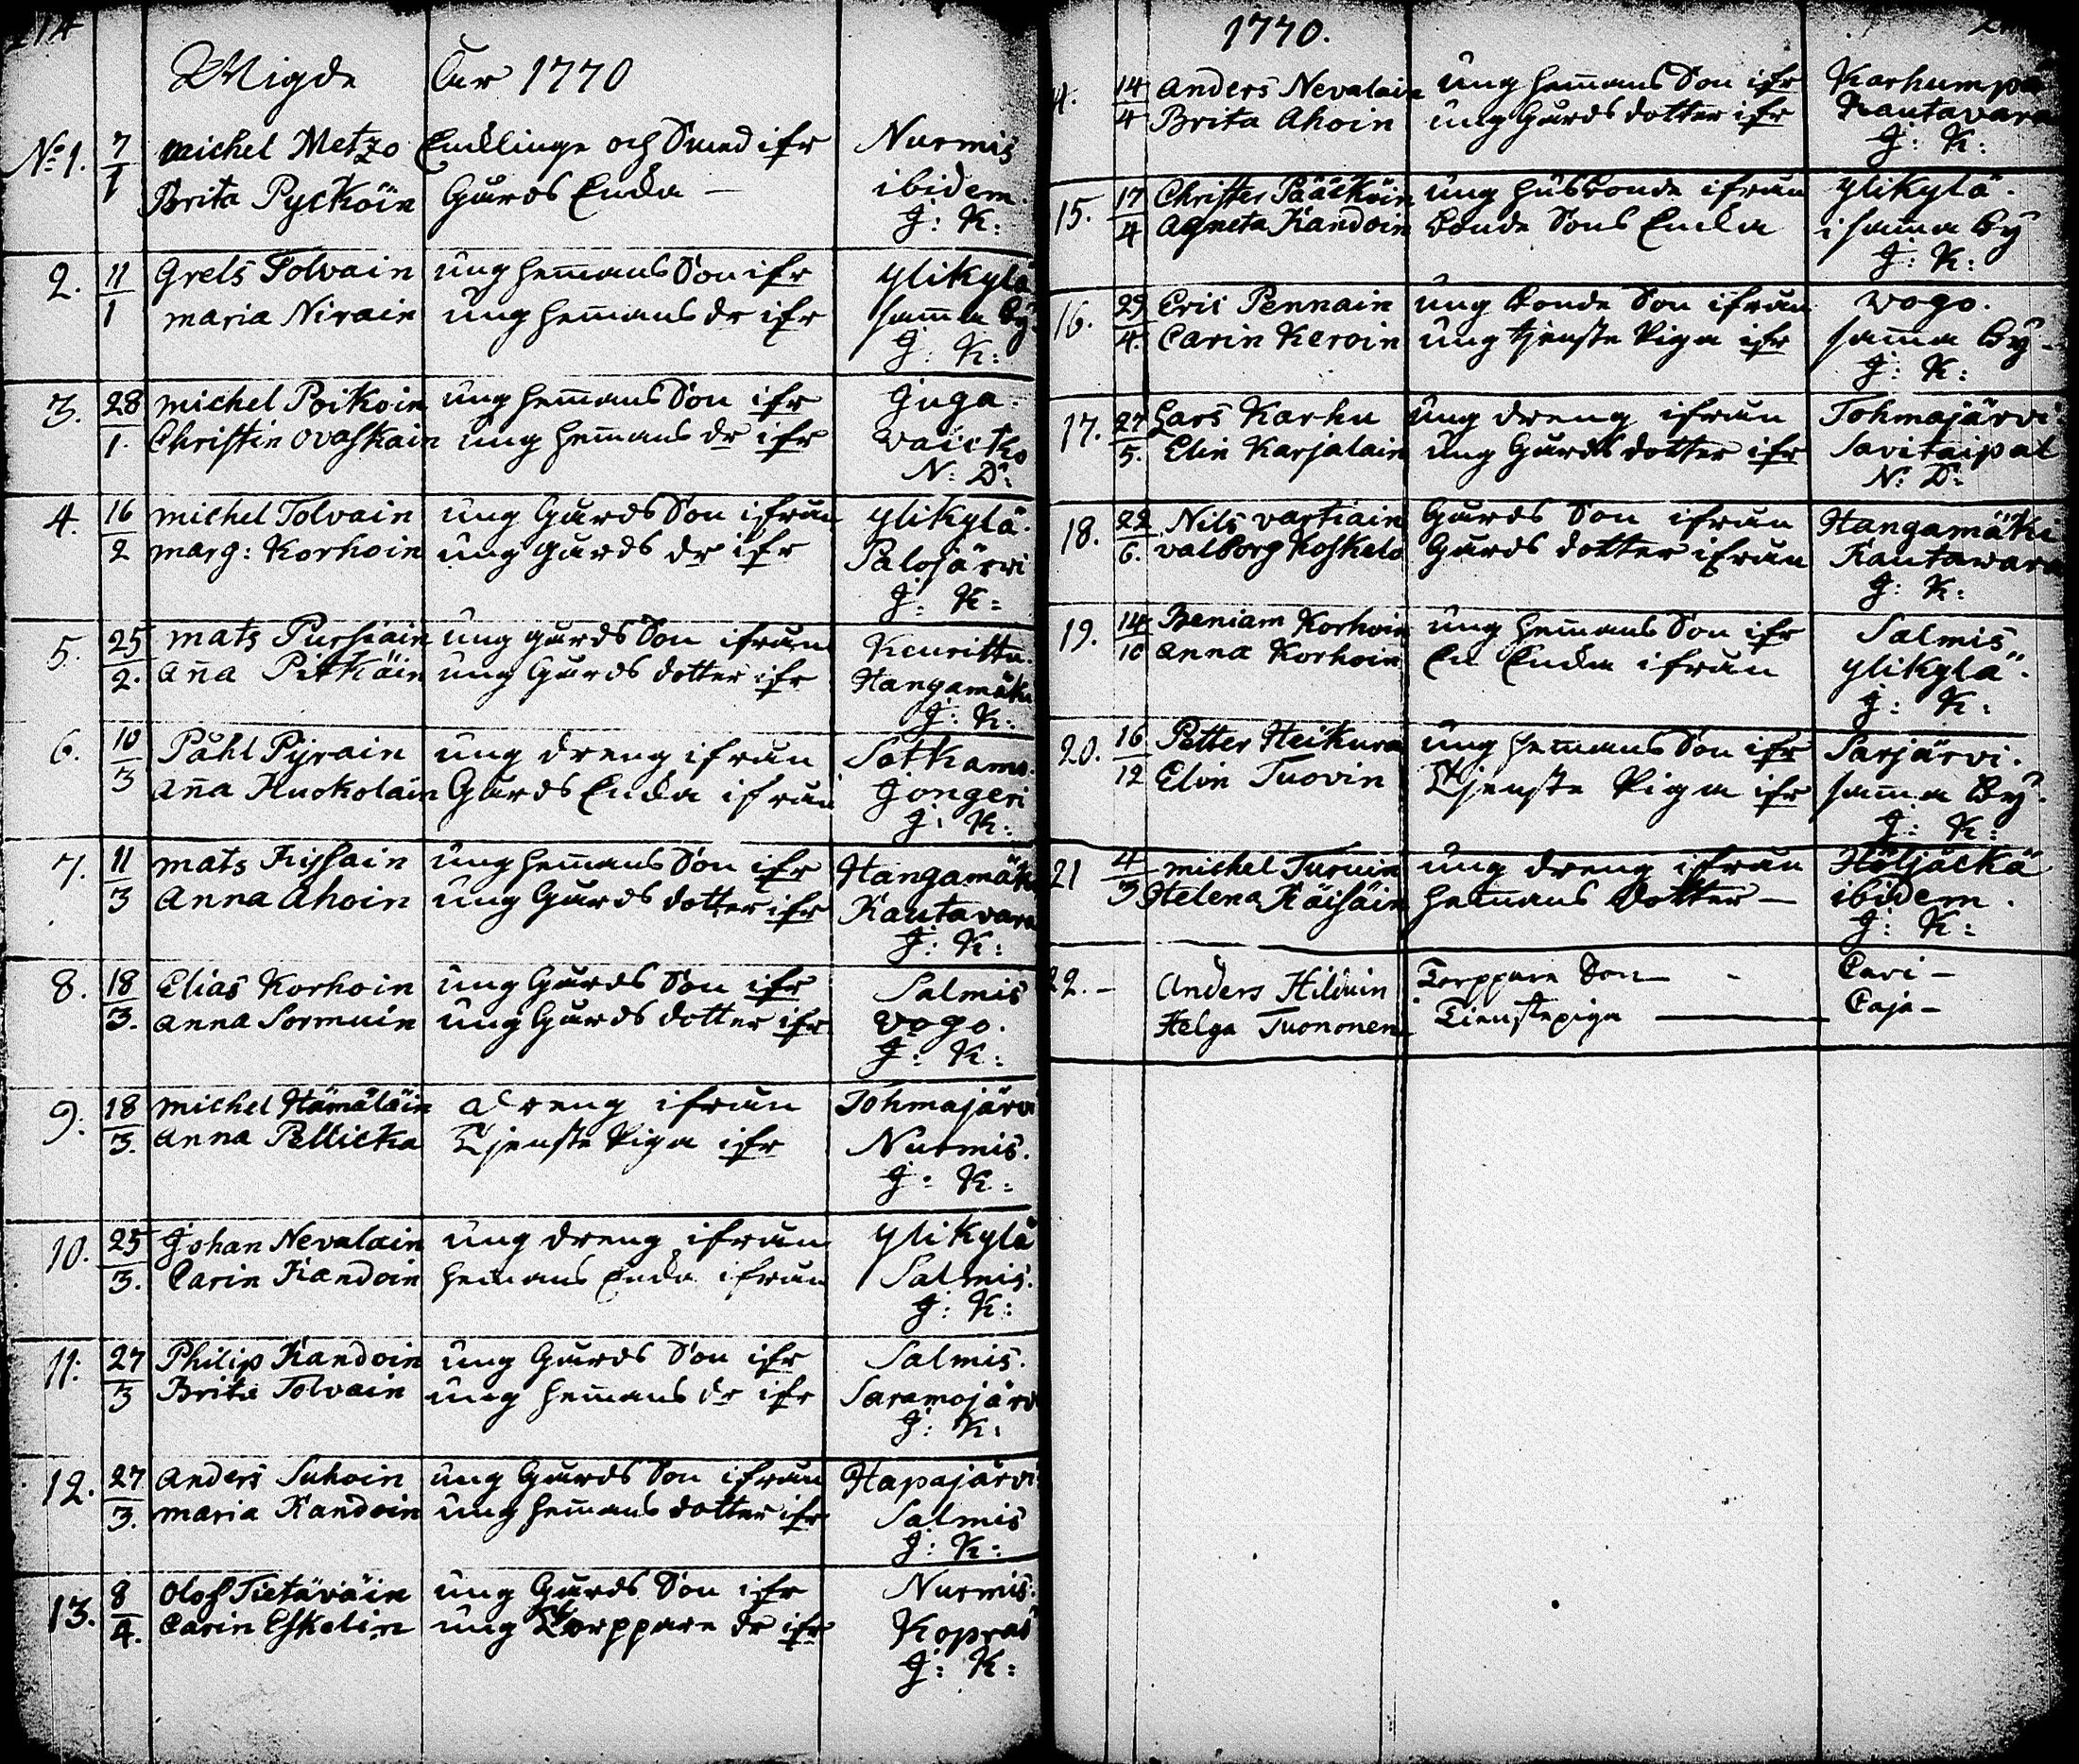 214
Wigde År 1770
No 1. 7/1 Michel Metzo Encklinge och Smed ifr Nurmis
Brita Pycköin Gårds Encka – ibidem.
J: K:
2. 11/1 Grels Tolvain ung hemans Son ifr ylikylä
maria Nirain ung hemans dr ifr samma by
J: K:
3. 28/1. michel Poikoin ung hemans Son ifr Juga.
Christin ovaskain ung hemans dr ifr
N: D:
4. 16/2 michel Tolvain ung Gårds Son ifrån ylikylä.
marg: Korhoin ung gårds dr ifr Palojärvi
J: K:
5. 25/2. mats Pursiain ung gårds Son ifrån
aña Pitkäin ung Gårds dotter ifr Hangamäki
J: K:
6. 10/3 Påhl Pijrain ung dreng ifrån Sotkamo.
aña Huokolain Gårds Encka ifrån Jongeri
J: K:
7. 11/3 mats Kijsain ung hemans Son ifr Hangamäki
Anna Ahoin ung Gårds dotter ifr Kautavara
J: K:
8. 18/3. Elias Korhoin ung Gårds Son ifr Salmis
anna Sormuin ung Gårds dotter ifr vogo.
J: K:
9. 18/3. michel Hämäläin dreng ifrån Tohmajärvi
anna Pellicka Tjenste Piga ifr Nurmis.
J: K:
10. 25/3. Johan Nevalain ung dreng ifrån ylikylä
Carin Kandoin hemans Encka ifrån Salmis.
J: K:
11. 27/3 Philip Kandoin ung Gårds Son ifr Salmis.
Brita Tolvain ung hemans dr ifr Saramojärvi
J: K:
12. 27/3. Anders Suhoin ung Gårds Son ifrån Hapajärvi
maria Kandoin ung hemans dotter ifr Salmis
J: K:
13. 8/4. Olof Tietäväin ung Gårds Son ifr Nurmis.
Carin Eskelin ung Torppare dr ifr Kopras
J: K:
1770.
14/4 Anders Nevalain ung hemans Son ifr Karhunpä
Brita Ahoin ung Gårds dotter ifr Kautavara
J: K:
15. 17/4 Christer Pääcköin ung husbonde ifrån ylikylä.
Agneta Kandoin bonde Sons Encka i samma by
J: K:
16. 29/4. Eric Pennain ung bonde Son ifrån vogo.
Carin Keroin ung tjenste Piga ifr samma by
J: K:
17. 27/5. Lars Karhu ung dreng ifrån Tohmajärvi.
Elin Karjalain ung Gårds dotter ifr Savitaipal
N: D:
18. 22/6. Nils vartiain Gårds Son ifrån Hangamäki
valborg Koskelo Gårds dotter ifrån Kautawara
J: K:
19. 14/10 Beniam Korhoin ung hemans Son ifr Salmis
Anna Korhoin En Encka ifrån ylikylä.
J: K:
20. 16/12 Petter Heikura ung hemans Son ifr Sarjärvi.
Elin Tuovin Tjenste Piga ifr samma by.
J: K:
21 4/3 michel Turuin ung dreng ifrån Höljäckä
Helena Käisäin hemans dotter – ibidem.
J: K:
22. – Anders Hilduin Torppare Son – –
Helga Tuononen Tienstepiga –